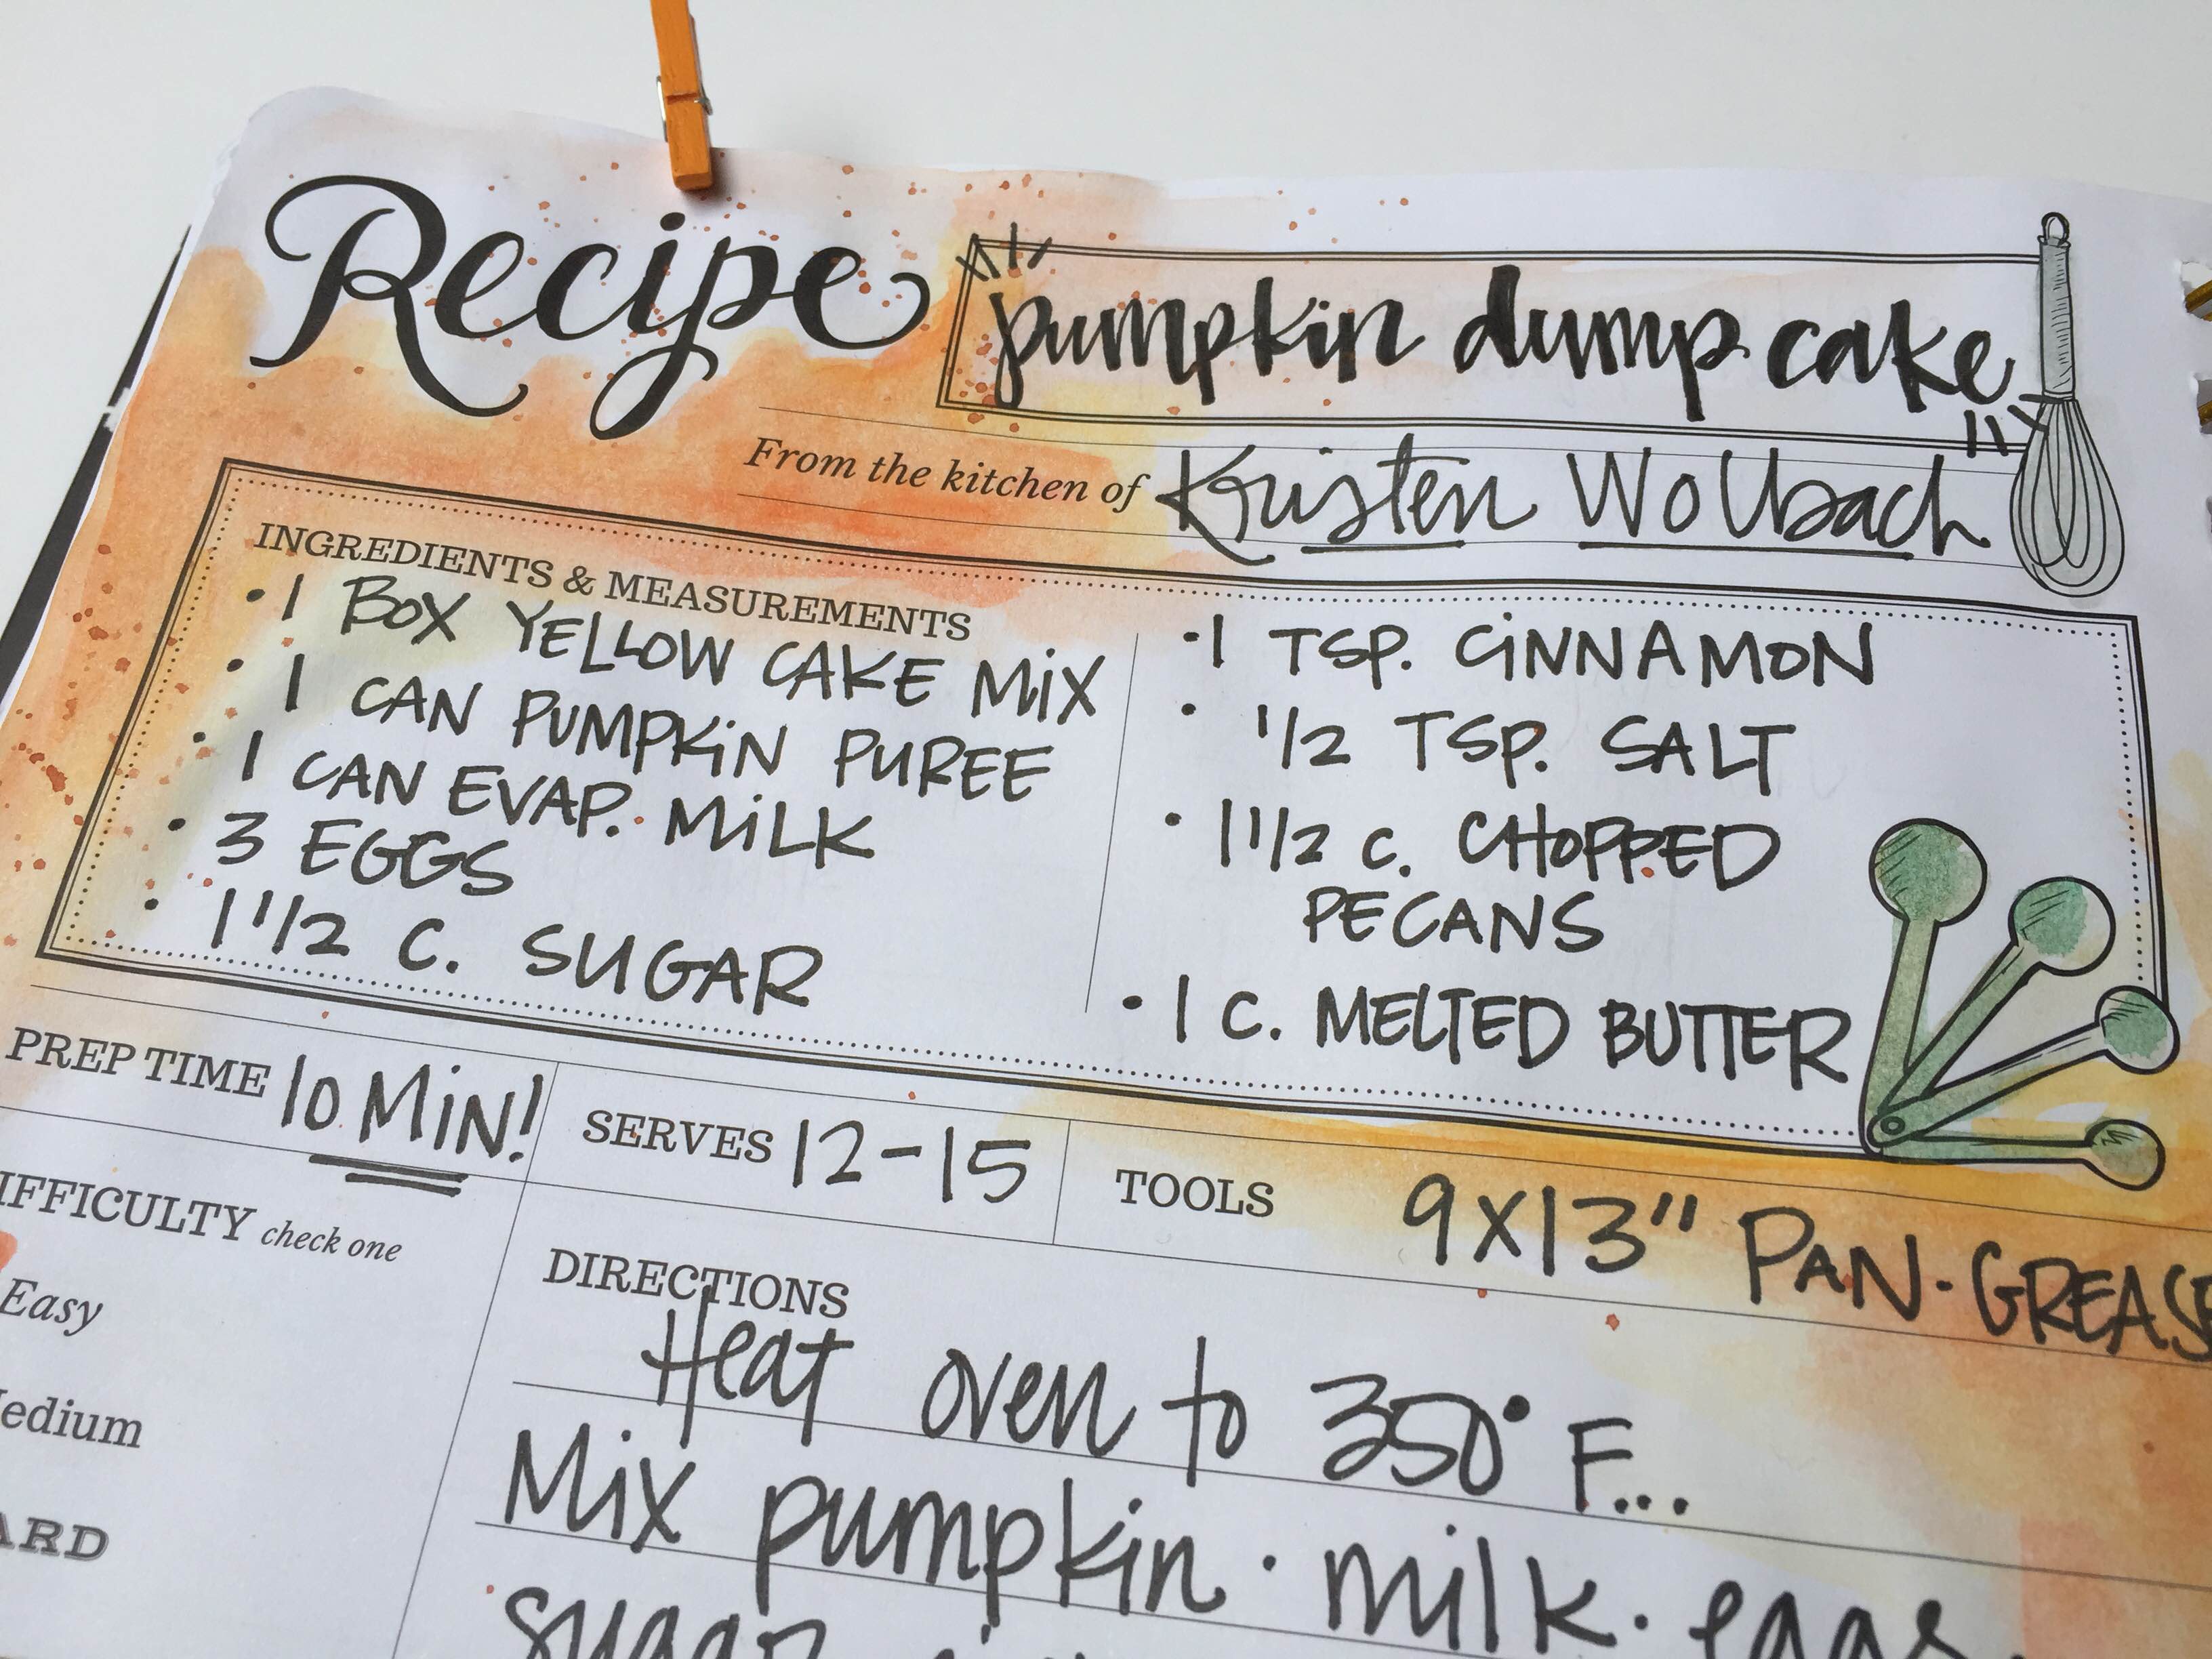 Recipe
pumpkin dump cake
From the kitchen of Kristen Wolbach
INGREDIENTS & MEASUREMENTS
• 1 BOX YELLOW CAKE MIX
• 1 CAN PUMPKIN PUREE
• 1 CAN EVAP. MILK
• 3 EGGS
• 1 1/2 C. SUGAR
• 1 TSP. CINNAMON
• 1/2 TSP. SALT
• 1 1/2 C. CHOPPED
PECANS
• 1 C. MELTED BUTTER
PREP TIME 10 MIN!
SERVES 12-15
TOOLS 9X13" PAN · GREASE
IFFICULTY check one
Easy
edium
ARD
DIRECTIONS
Heat oven to 350° F...
Mix pumpkin · milk · eggs
sugar